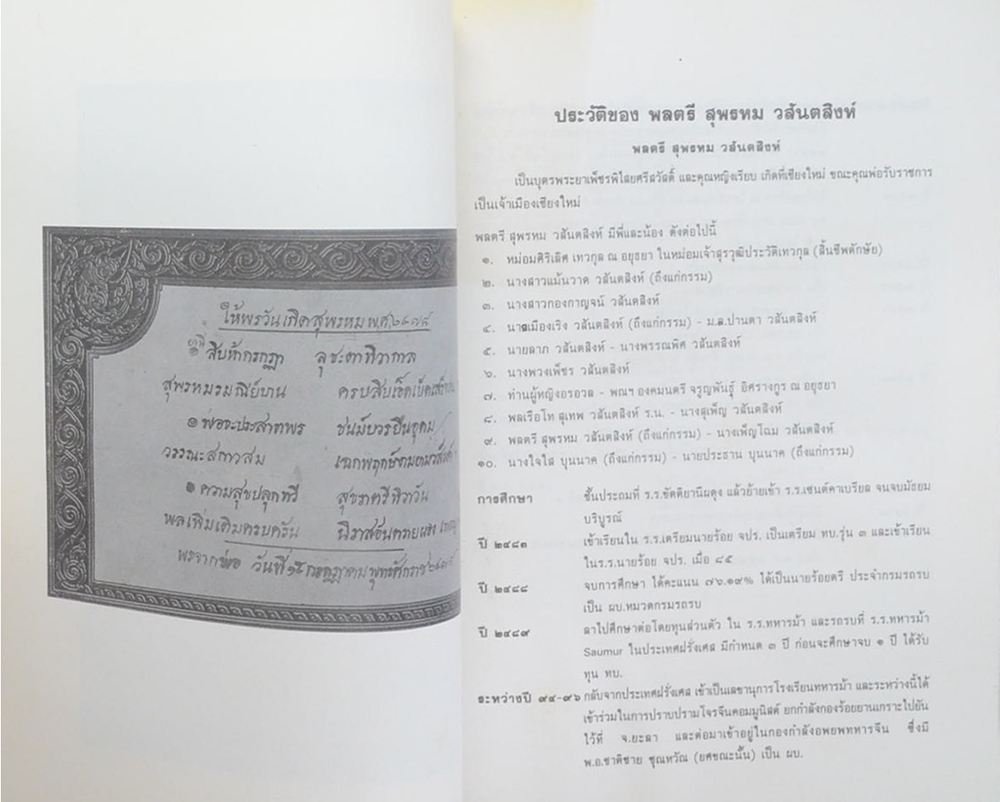 ให้พรวันเกิดสุพรหม พ.ศ.๒๔๗๘
สิบห้ากรกฎา
สุพรหมรมณีย์บาน ครบสิบเอ็ด
๑ พ่อจะประสาทพร
วรรณะสกาวสม
๑ ความสุขปลุกทวี
พลเพิ่มเติมครบครัน
พรจากพ่อ วันที่ ๑๕ กรกฎาคม
ประวัติของ พลตรี สุพรหม วสันตสิงห์
พลตรี สุพรหม วสันตสิงห์
เป็นบุตรพระยาเพ็ชรพิไสยศรีสวัสดิ์ และคุณหญิงเรียบ เกิดที่เชียงใหม่ ขณะคุณพ่อรับราชการ
เป็นเจ้าเมืองเชียงใหม่
พลตรี สุพรหม วสันตสิงห์ มีพี่และน้อง ดังต่อไปนี้
๑. หม่อมศิริเลิศ เทวกุล ณ อยุธยา ในหม่อมเจ้าสุรวุฒิประวัติเทวกุล (สิ้นชีพตักษัย)
๒. นางสาวแม้นวาด วสันตสิงห์ (ถึงแก่กรรม)
๓. นางสาวกองกาญจน์ วสันตสิงห์
๔. นายเมืองเริง วสันตสิงห์ (ถึงแก่กรรม) - ม.ล.ปานตา วสันตสิงห์
๕. นายลาภ วสันตสิงห์ - นางพรรณพิศ วสันตสิงห์
๖. นางพวงเพ็ชร วสันตสิงห์
๗. ท่านผู้หญิงอรอวล - พณฯ องคมนตรี จรูญพันธุ์ อิศรางกูร ณ อยุธยา
๘. พลเรือโท สุเทพ วสันตสิงห์ ร.น. - นางสุเพ็ญ วสันตสิงห์
๙. พลตรี สุพรหม วสันตสิงห์ (ถึงแก่กรรม) - นางเพ็ญโฉม วสันตสิงห์
๑๐. นางใจใส บุนนาค (ถึงแก่กรรม) - นายประธาน บุนนาค (ถึงแก่กรรม)
การศึกษา ชั้นประถมที่ ร.ร.ขัตติยานีผดุง แล้วย้ายเข้า ร.ร.เซนต์คาเบรียล จนจบมัธยม
บริบูรณ์
ปี ๒๔๘๓ เข้าเรียนใน ร.ร.เตรียมนายร้อย จปร. เป็นเตรียม ทบ.รุ่น ๓ และเข้าเรียน
ในร.ร.นายร้อย จปร. เมื่อ ๘๕
ปี ๒๔๘๘ จบการศึกษา ได้คะแนน ๗๖.๑๙% ได้เป็นนายร้อยตรี ประจำกรมรถรบ
เป็น ผบ.หมวดกรมรถรบ
ปี ๒๔๘๙ ลาไปศึกษาต่อโดยทุนส่วนตัว ใน ร.ร.ทหารม้า และรถรบที่ ร.ร.ทหารม้า
Saumur ในประเทศฝรั่งเศส มีกำหนด ๓ ปี ก่อนจะศึกษาจบ ๑ ปี ได้รับ
ทุน ทบ.
ระหว่างปี ๙๔-๙๖ กลับจากประเทศฝรั่งเศส เข้าเป็นเลขานุการโรงเรียนทหารม้า และระหว่างนี้ได้
เข้าร่วมในการปราบปรามโจรจีนคอมมูนิสต์ ยกกำลังกองร้อยยานเกราะไปยัน
ไว้ที่ จ.ยะลา และต่อมาเข้าอยู่ในกองกำลังอพยพทหารจีน ซึ่งมี
พ.อ.ชาติชาย ชุณหวัณ (ยศขณะนั้น) เป็น ผบ.